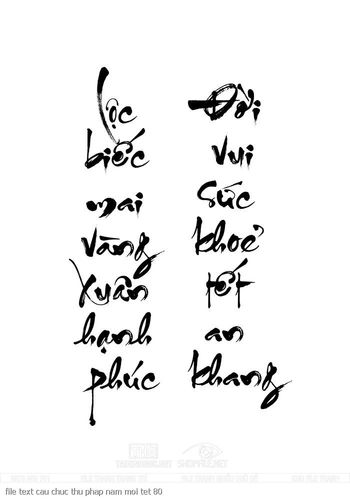 Lộc
biếc
mai
vàng
Xuân
hạnh
phúc
Đời
vui
sức
khoẻ
tết
an
khang
SHOPFILE.NET
file text cau chuc thu phap nam moi tet 80